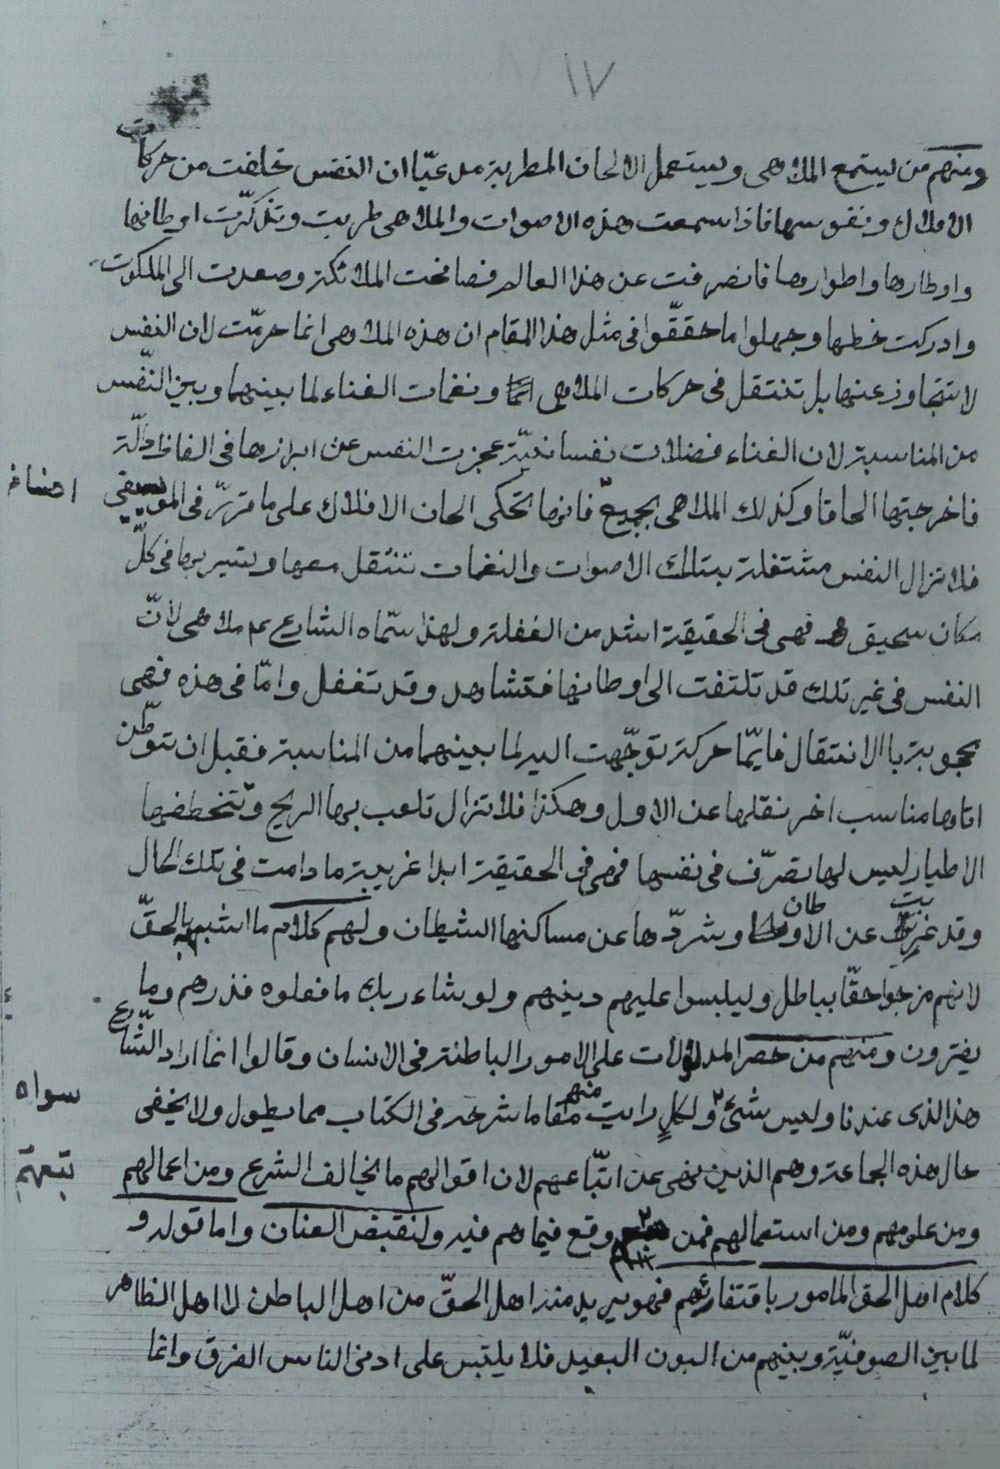 ١٧
ومنهم من ليستمع الملاهى ويستعمل الالحان المطربة مدعيّا ان النفس تخلفت من حركات
الافلاك ونفوسها فاذا سمعت هذه الاصوات والملاهى طربت وتذكّرت اوطانها
واوطارها واطوارها فانصرفت عن هذا العالم فصافحت الملائكة وصعدت الى الملكوت
وادركت خطها وجهلوا ما حققّوا فى مثل هذا المقام ان هذه الملاهى انما حرمّت لان النفس
لا تتجاوز عنها بل تنتقل فى حركات الملاهى ونغمات الغناء لما بينهما وبين النّفس
من المناسبة لان الغناء فضلات نفسانيّة عجزت النفس عن ابرازها فى الفاظ دالّة
فاخرجتها الحانا وكذلك الملاهى بجميع اصنافه فانها تحكى الحان الافلاك على ما قرّر فى الموسيقى
فلا تزال النفس مشتغلة بتلك الاصوات والنغمات تنتقل معها وتسير بها فى كلّ
مكان سحيق فهى فى الحقيقة اشد من الغفلة ولهذا سمّاه الشارع عم ملاهى لأنّ
النفس فى غير تلك قد تلتفت الى اوطانها فتشاهد وقد تغفل وامّا فى هذه فهى
محجوبة بالانتقال فايّما حركة توجّهت اليه لما بينهما من المناسبة فقبل ان تتوطّن
اتاها مناسب اخر نقلها عن الاول وهكذا فلا تزال تلعب بها الريح وتتخطفها
الاطيار ليس لها تصرّف فى نفسها فهى فى الحقيقة ابدا غريبة ما دامت فى تلك الحال
وقد غربت عن الاوطان وشردّها عن مساكنها الشيطان ولهم كلام ما اشبهه بالحقّ
لانهم مزجوا حقّا بباطل وليلبسوا عليهم دينهم ولو شاء ربك ما فعلوه فذرهم وما
يفترون ومنهم من حصر المدلولات على الامور الباطنة فى الانسان وقالوا انما اراد الشّارع
هذا الذى عندنا وليس شئ سواه ولكلٍ رايت منهم مقاما شرحه فى الكتاب مما يطول ولا يخفى
حال هذه الجماعة وهم الذين نهى عن اتبّاعهم لان اقوالهم ما يخالف الشرع ومن اعمالهم
ومن علومهم ومن استعمالهم فمن تبعهم وقع فيما هم فيه ولنقبض العنان واما قوله و
كلام اهل الحق المامور باقتفائهم فهو يريد منه اهل الحقّ من اهل الباطن لا اهل الظاهر
لما بين الصوفيّة وبينهم من البون البعيد فلا يلتبس على ادنى الناس الفرق وانما